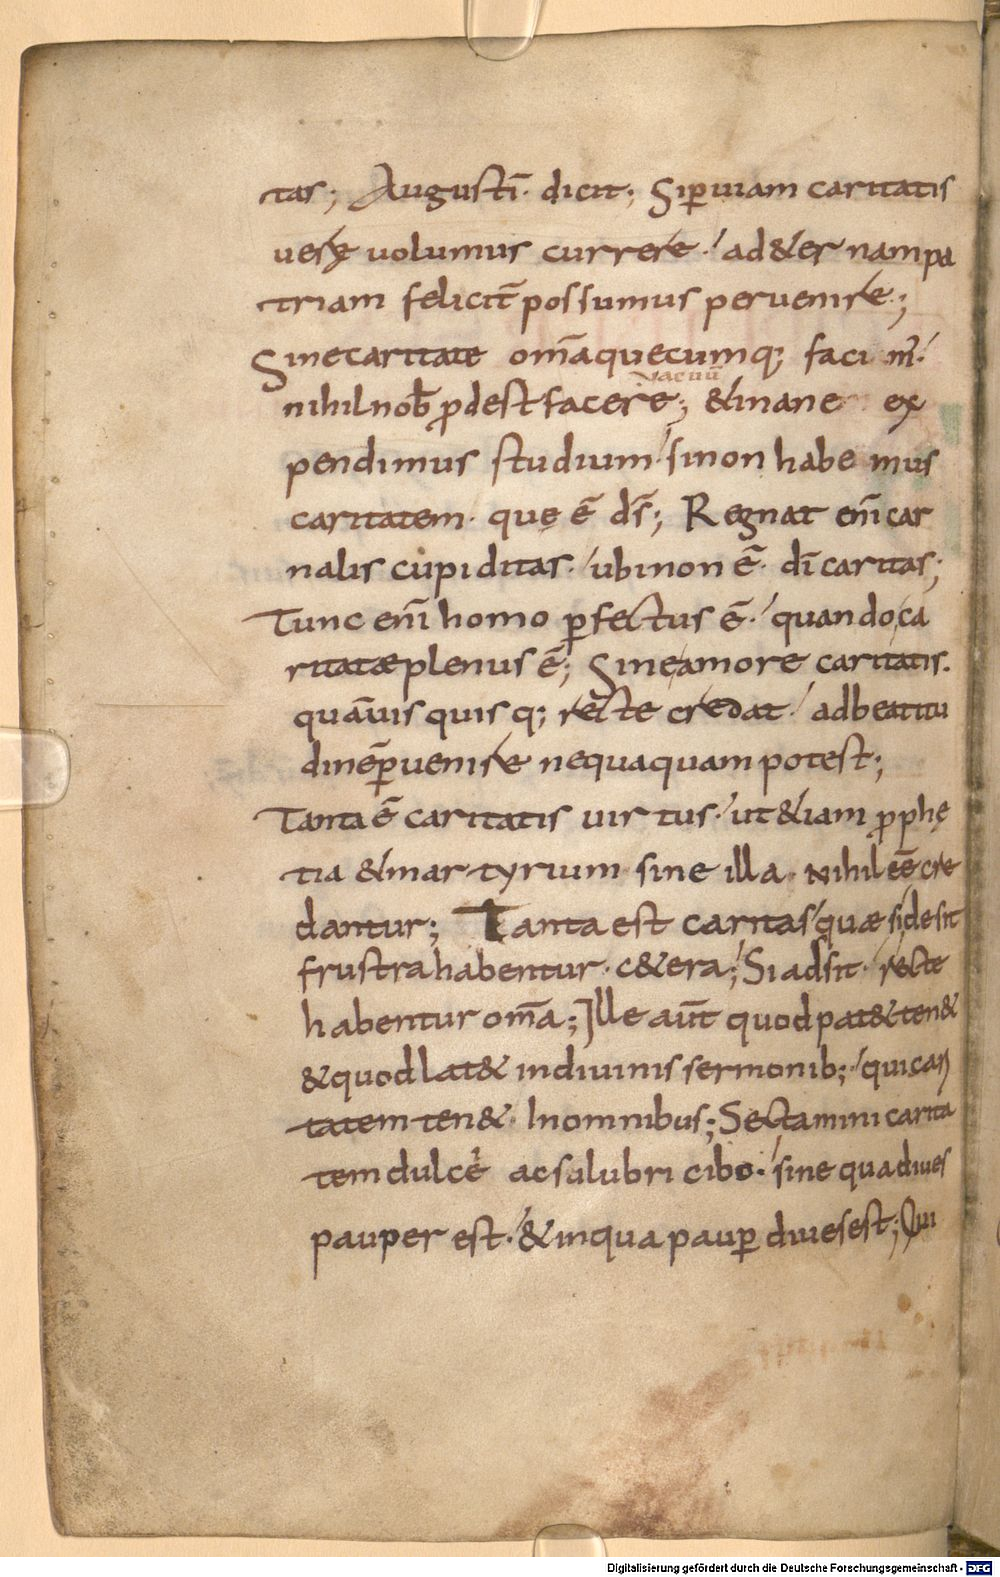 tas; Augustī· dicit; Siꝑ uiam caritatis
uerę uolumus currere·/ ad&er nam pa
triam felicit̄ possumus peruenire·;
Sine caritate om̄a quecumq; faci m̄·/
uacuū
nihil nob̄ ꝓdest facere; &inane ex
pendimus studium·/ si non habe mus
caritatem· quę ē d̄s; Regnat eni̅ car
nalis cupiditas·/ ubi non ē· di̅ caritas;
Tunc eni̅ homo ꝑfectus ē·/ quando ca
ritatæ plenus ē; Sine amore caritatis.
quāuis quis q; recte credat·/ ad beatitu
dinē ꝑuenire nequaquam potest;
Tanta ē caritatis uirtus·/ ut &iam ꝓphę
tia & martyrium sine illa· nihil eē cre
dantur; Tanta est caritas/ quæ si desit
frustra habentur· c&era;/ Si adsit· recte
habentur om̄a; Ille aūt quod pat& ten&
& quod lat& in diuinis sermonib;·/ qui cari
tatem ten&· In omnibus; Sectamini carita
tem dulcē ac salubri cibo·/ sine qua diues
pauper est·/ & in qua pauꝑ diues est; Qui
Digitalisierung gefördert durch die Deutsche Forschungsgemeinschaft - DFG